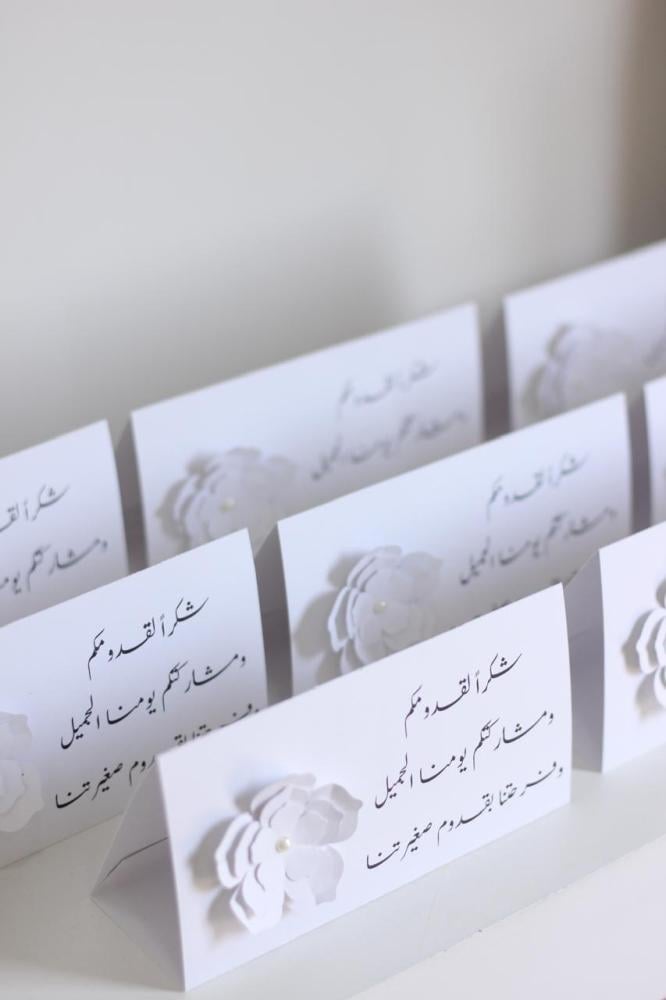 شكراً لقدومكم
ومشاركتكم يومنا الجميل
وفرحتنا بقدوم صغيرتنا
شكراً لقدومكم
ومشاركتكم يومنا الجميل
وفرحتنا بقدوم صغيرتنا
شكراً لقدومكم
ومشاركتكم يومنا الجميل
شكراً لقدومكم
ومشاركتكم يومنا الجميل
شكراً
ومشاركتكم